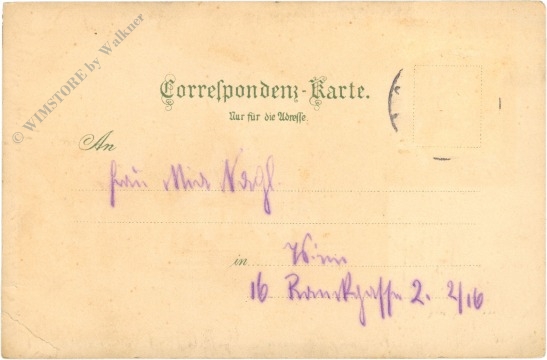 © WIMSTORE by Walkner
Correspondenz-Karte.
Nur für die Adresse.
An
Frau Mia Nagl
in Wien
16 Ranckgasse 2. 2/16